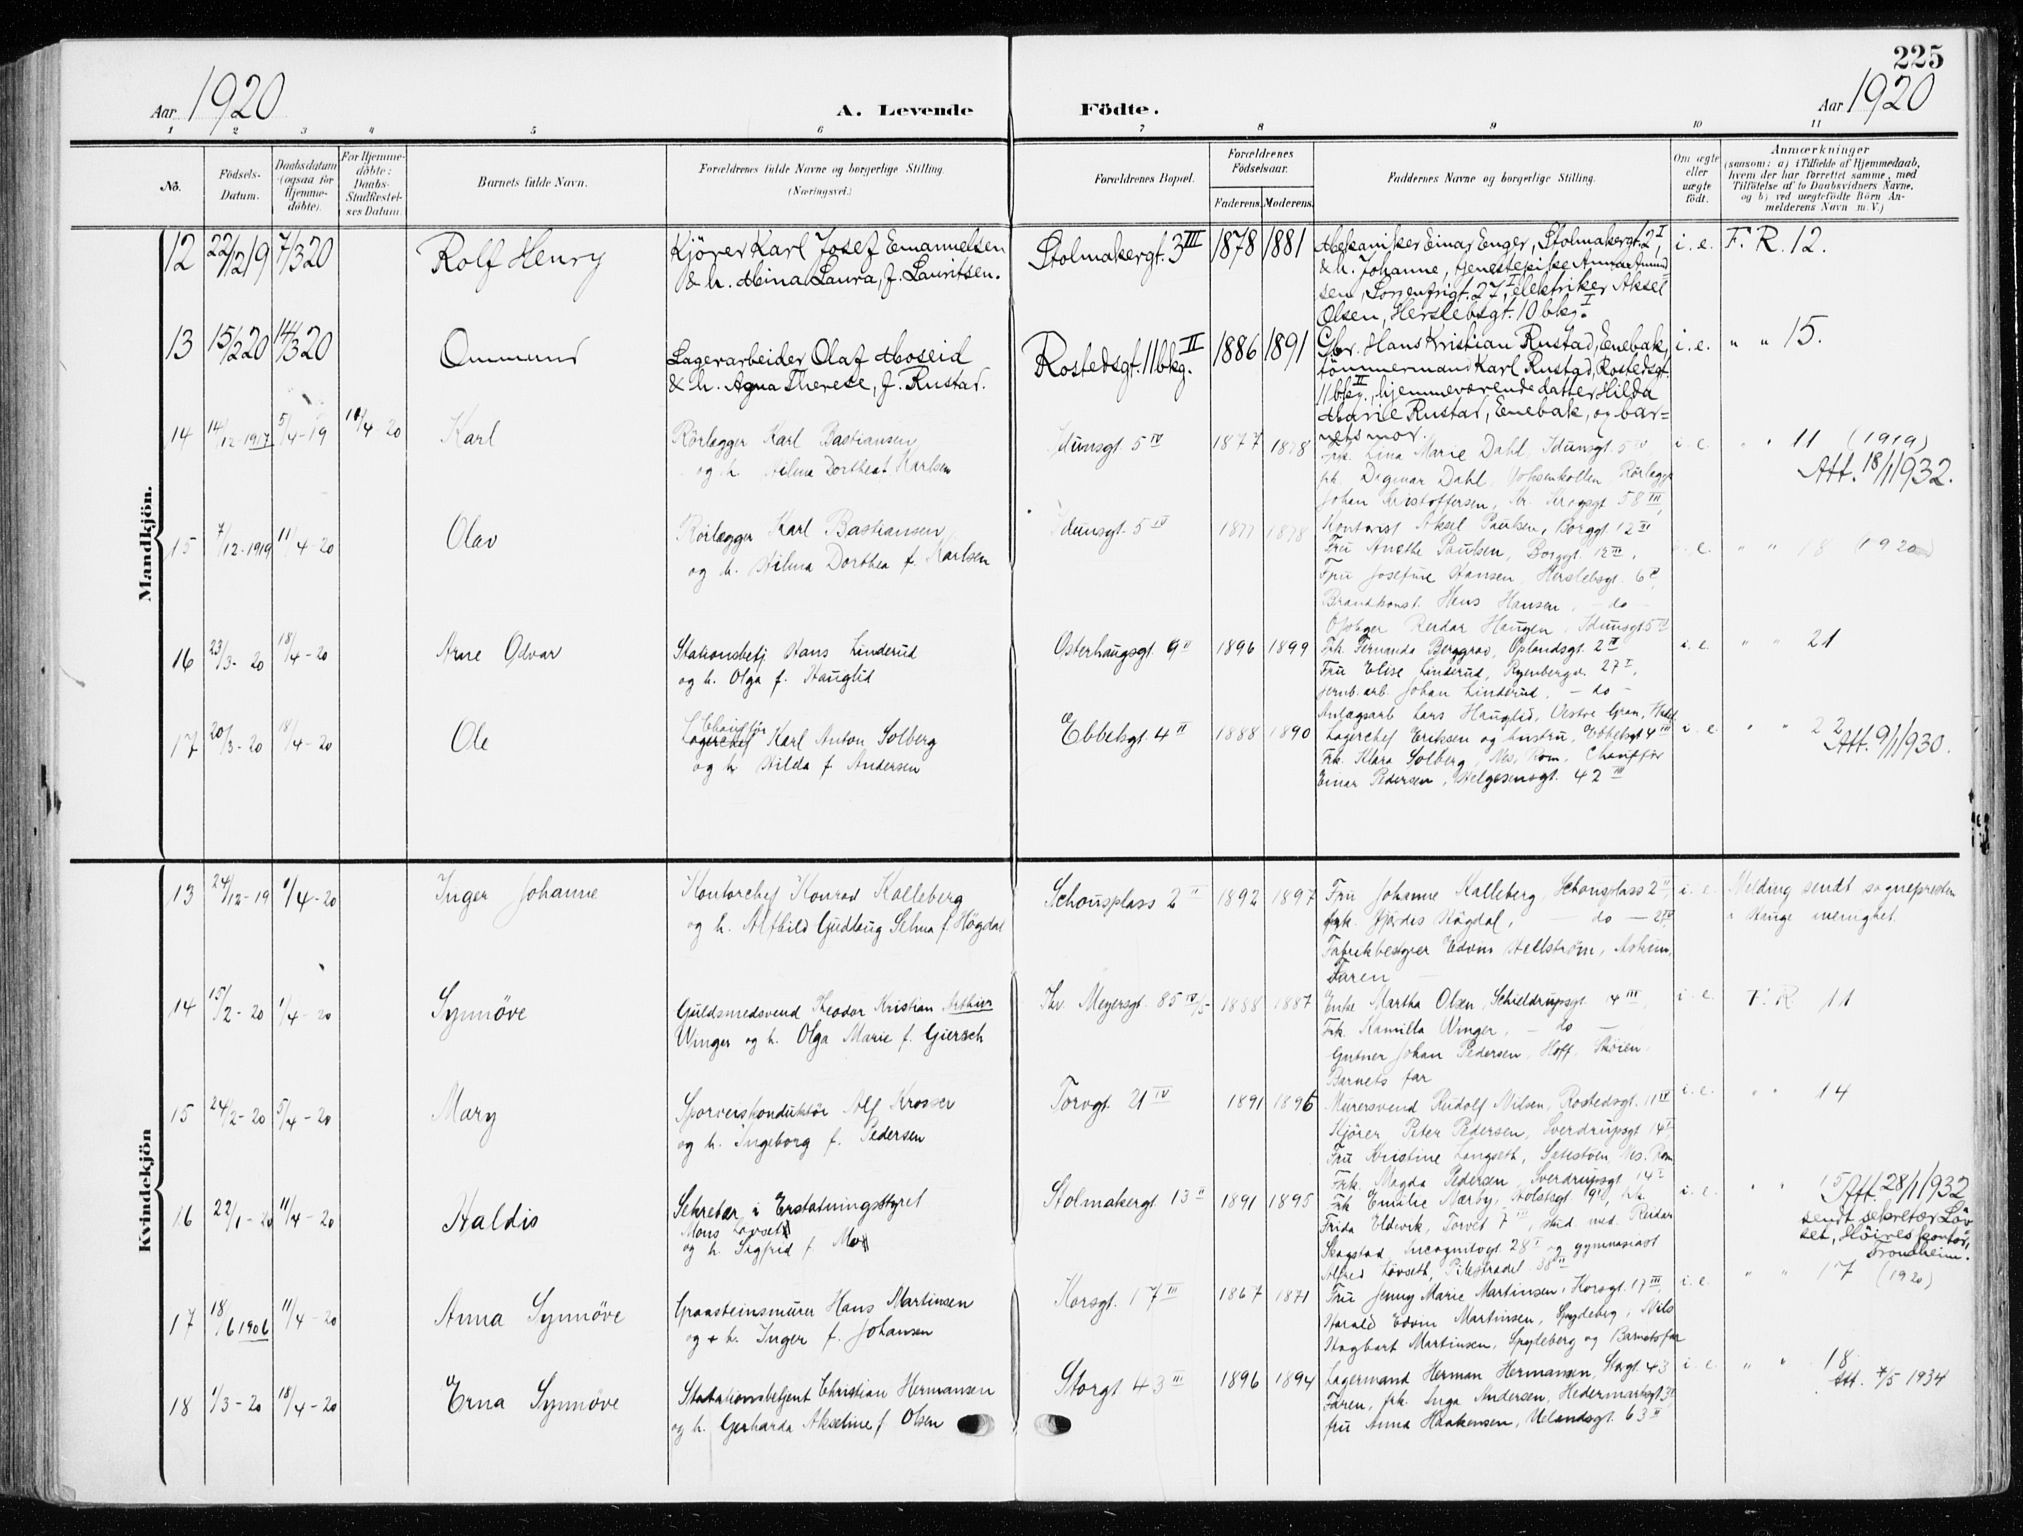 225
Aar 1920
A. Levende Födte.
Aar 1920
1 2 3 4 5 6 7 8 9 10 11
No.
Födsels-
Datum.
Daabsdatum
(ogsaa for
Hjemme-
döbte).
For Hjemme-
döbte:
Daabs-
Stadfæstel-
ses Datum.
Barnets fulde Navn.
Forældrenes fulde Navne og borgerlige Stilling
(Næringsvei.)
Forældrenes Bopæl.
Forældrenes
Födselsaar.
Faderens. Moderens.
Faddernes Navne og borgerlige Stilling.
Om ægte
eller
uægte
födt.
Anmærkninger
(saasom: a) i Tilfælde af Hjemmedaab,
hvem der har forrettet samme, med
Tilföielse af to Daabsvidners Navne,
og b) ved uægtefödte Börn An-
melderens Navn m. V.)
Mandkjön.
12 22/12 19 7/3 20 Rolf Henry
Kjörer Karl Josef Emanuelsen
& h. Mina Laura, f. Lauritsen.
Stolmakergt. 3 III 1878 1881
Mekaniker Einar Enger, Stolmakergt. 2 I,
& h. Johanne, tjenestepike Anna Amund
sen, Lorentzgt. 27 I, elektriker Aksel
Olsen, Herslebsgt. 10 bkg. I
i. e. F. R. 12.
13 15/2 20 14/3 20 Ommund
Lagerarbeider Olaf Moseid
& h. Agna Therese, f. Rustad.
Rostedsgt. 11 bkg. II 1886 1891
Gbr. Hans Kristian Rustad, Enebak,
tömmermand Karl Rustad, Rostedsgt.
11 bkg. II, hjemmeværende datter Hilda
Marie Rustad, Enebak, og bar-
nets mor.
i. e. " " 15.
14 14/12-1917 5/4-19 10/4-20 Karl
Rörlægger Karl Bastiansen
og h. Hilma Dorthea f. Karlsen
Idunsgt. 5 IV 1877 1878
Frk. Lina Marie Dahl, Idunsgt. 5 IV
frk. Dagmar Dahl, Voksenkollen, Rörlægger
Johan Kristoffersen, Kr. Krogsgt 58 III,
i. e. " " 11 (1919)
Att. 18/1 1932.
15 7/12-1919 11/4-20 Olav
Rörlægger Karl Bastiansen
og h. Hilma Dorthea f. Karlsen
Idunsgt. 5 IV 1877 1878
Kontorist Aksel Paulsen, Borggt 12 III
Fru Anethe Paulsen, Borggt. 12 III,
Fru Josefine Hansen, Herslebsgt. 6
Brandkonst. Hans Hansen, - do -
Reidar Haugen, Idunsgt 5 IV
i. e. " " 18 (1920)
16 23/3-20 18/4-20 Arne Odvar
Stationsbetj Hans Linderud
og h. Olga f. Hauglid
Osterhaugsgt 9 II 1896 1899
Frk. Fernanda Berggrav, Oplandsgt. 2 II
Fru Elise Linderud, Ryenbergv. 27 I,
jernb.arb. Johan Linderud, - do -
Anlægsarb Lars Hauglid, Vestre Gran, Hadel
i. e. " " 21
17 20/3-20 18/4-20 Ole
Chauffør
Lagerchef Karl Anton Solberg
og h Hilda f. Andersen
Ebbelsgt 4 II 1888 1890
Lagerchef Eriksen og hustru, Ebbelsgt 4 III
Frk. Klara Solberg, Nes, Rom. Chauffør
Einar Pedersen, Helgesensgt. 42 III
i. e. " " 22
Att. 9/1 1930.
Kvindekjön
13 24/12-19 1/4-20 Inger Johanne
Kontorchef Konrad Kalleberg
og h. Alfhild Gudlaug Selma f. Högdal
Schousplass 2 II 1892 1897
Fru Johanne Kalleberg, Schousplass 2 II,
frk. Hjördes Högdal, - do - 2 IV,
Fabrikbestyrer Edvin Hellström, Askim,
Faren
i. e. Melding sendt sognepresten
i Hauge menighet.
14 15/2-20 1/4-20 Synnöve
Guldsmedsvend Theodor Kristian Arthur
Winger og h. Olga Marie f. Giersch
Thv. Meyersgt. 85 IV/5 1888 1887
Enke Martha Olsen, Schieldrupsgt. 14 III,
Frk. Kamilla Winger, - do -
Gartner Johan Pedersen, Hoff, Sköien
Barnets far
i. e. F. R. 11
15 24/2-20 5/4-20 Mary
Sporveiskonduktör Alf Krosser
og h. Ingeborg f. Pedersen
Torvgt. 21 IV 1891 1896
Murersvend Rudolf Nilsen, Rostedsgt. 11 IV
Kjörer Peter Pedersen, Sverdrupsgt 14 I,
Fru Kristine Langseth, Nes. Rom
Frk. Magda Pedersen, Sverdrupsgt 14 I
i. e. " " 14
16 22/1-20 11/4-20 Haldis
Sekretær i Erstatningsstyret
Mons Lövset
og h. Sigfrid f. Mo
Stolmakergt 13 II 1891 1895
Frk Emilie Nærby, Holstsgt 19, frk.
Frida Eldevik, Torvet 7 III, stud med. Reidar
Skogstad, Incognitogt 28 I og gymnasiast
Alfred Lövseth, Pilestrædet 38 II
i. e. " " 15 Att. 28/1 1932
sendt sekretær Löv-
set, Höires kontor,
Trondheim.
17 18/6 1906 11/4-20 Anna Synnöve
Graasteinsmurer Hans Martinsen
og h. Inger f. Johansen
Korsgt. 17 III 1867 1871
Fru Jenny Marie Martinsen, Korsgt. 17 III,
Harald Edvin Martinsen, Spydeberg, Nils
Hagbart Martinsen, Spydeberg og Barnets far
i. e. " " 17 (1920)
18 1/3-20 18/4-20 Erna Synnöve
Stationsbetjent Christian Hermansen
og h. Gerharda Akseline f Olsen
Storgt 43 III 1896 1894
Lagermand Herman Hermansen, Storgt 43
Faren, frk. Inga Andersen, Hedermarksgt 3
fru Anna Haakensen, Uelandsgt. 63 II
i. e. " " 18
Att. 4/5 1934